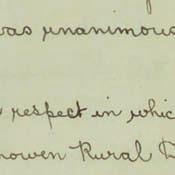 was unanimous
respect in which
nowen Rural D